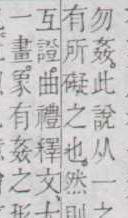 勿姦此說从一之
有所礙之也然則
互證曲禮釋文
一畫象有姦之形